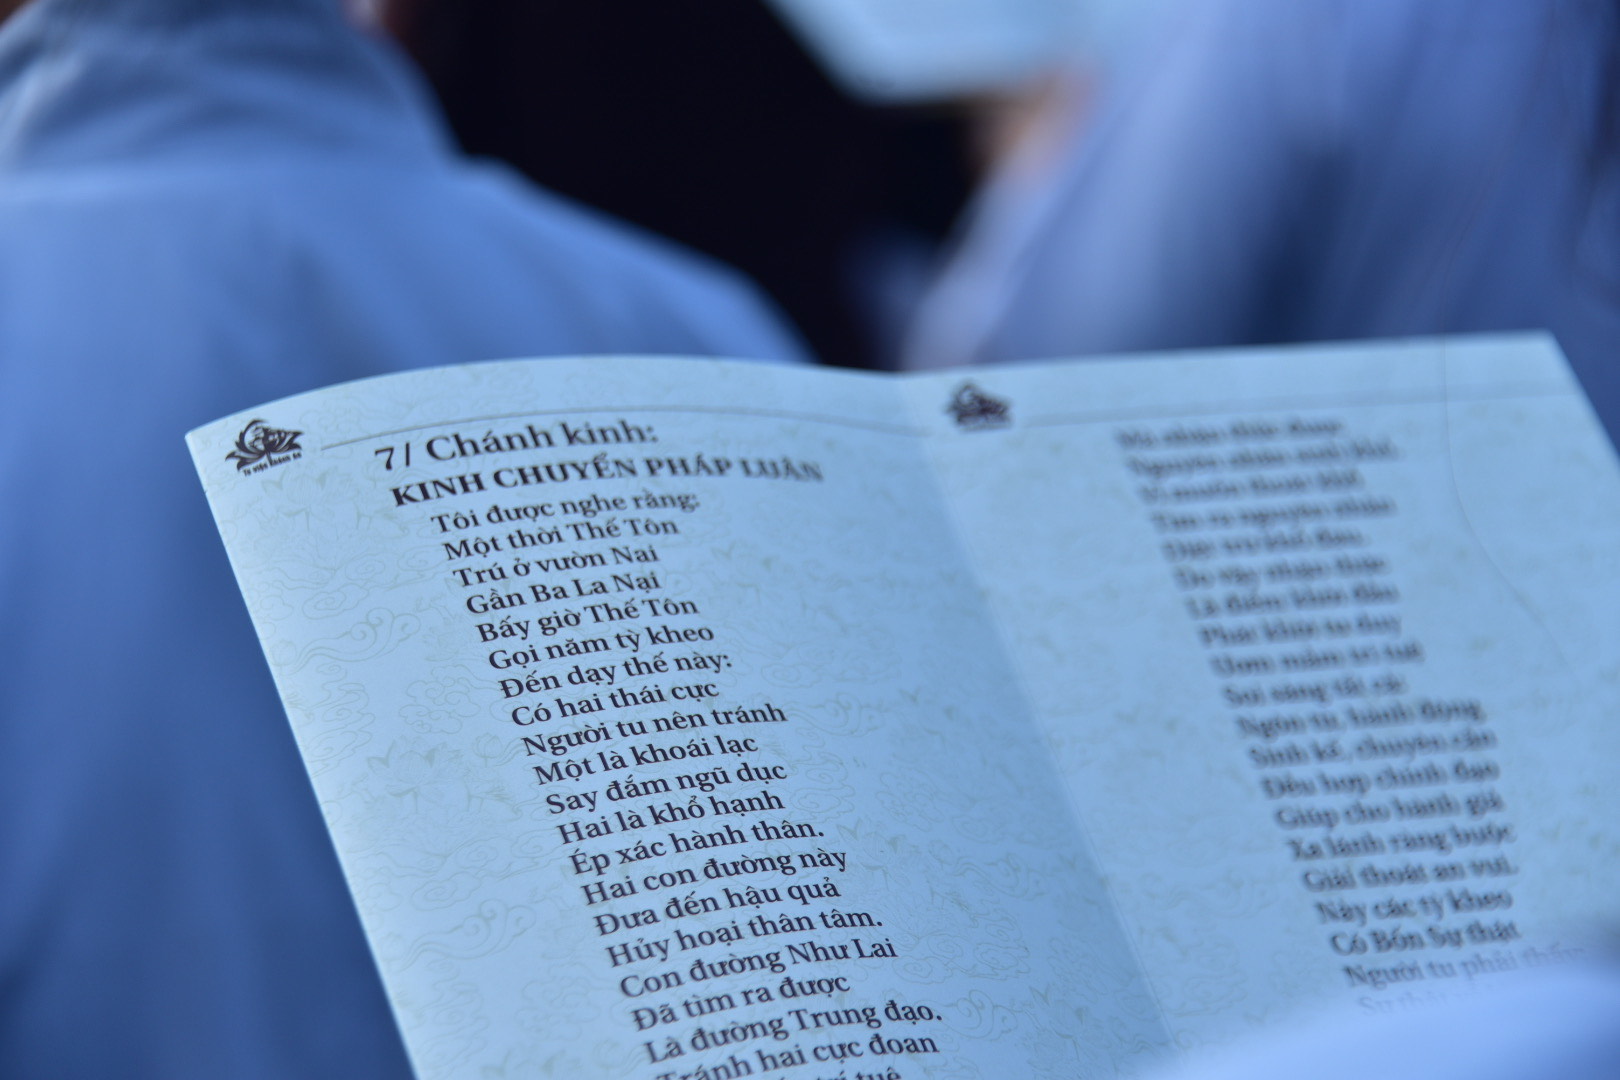 Tu viện Khánh An
7/ Chánh kinh:
KINH CHUYỂN PHÁP LUÂN
Tôi được nghe rằng:
Một thời Thế Tôn
Trú ở vườn Nai
Gần Ba La Nại
Bấy giờ Thế Tôn
Gọi năm tỳ kheo
Đến dạy thế này:
Có hai thái cực
Người tu nên tránh
Một là khoái lạc
Say đắm ngũ dục
Hai là khổ hạnh
Ép xác hành thân.
Hai con đường này
Đưa đến hậu quả
Hủy hoại thân tâm.
Con đường Như Lai
Đã tìm ra được
Là đường Trung đạo.
Tránh hai cực đoan
trí tuệ
Do vậy nhận thức
Là điểm khởi đầu
Phát khởi tư duy
Ươm mầm trí tuệ
Soi sáng tất cả
Ngôn từ, hành động
Sinh kế, chuyên cần
Đều hợp chính đạo
Giúp cho hành giả
Xa lánh ràng buộc
Giải thoát an vui.
Này các tỳ kheo
Có Bốn Sự thật
Người tu phải
Sự thật